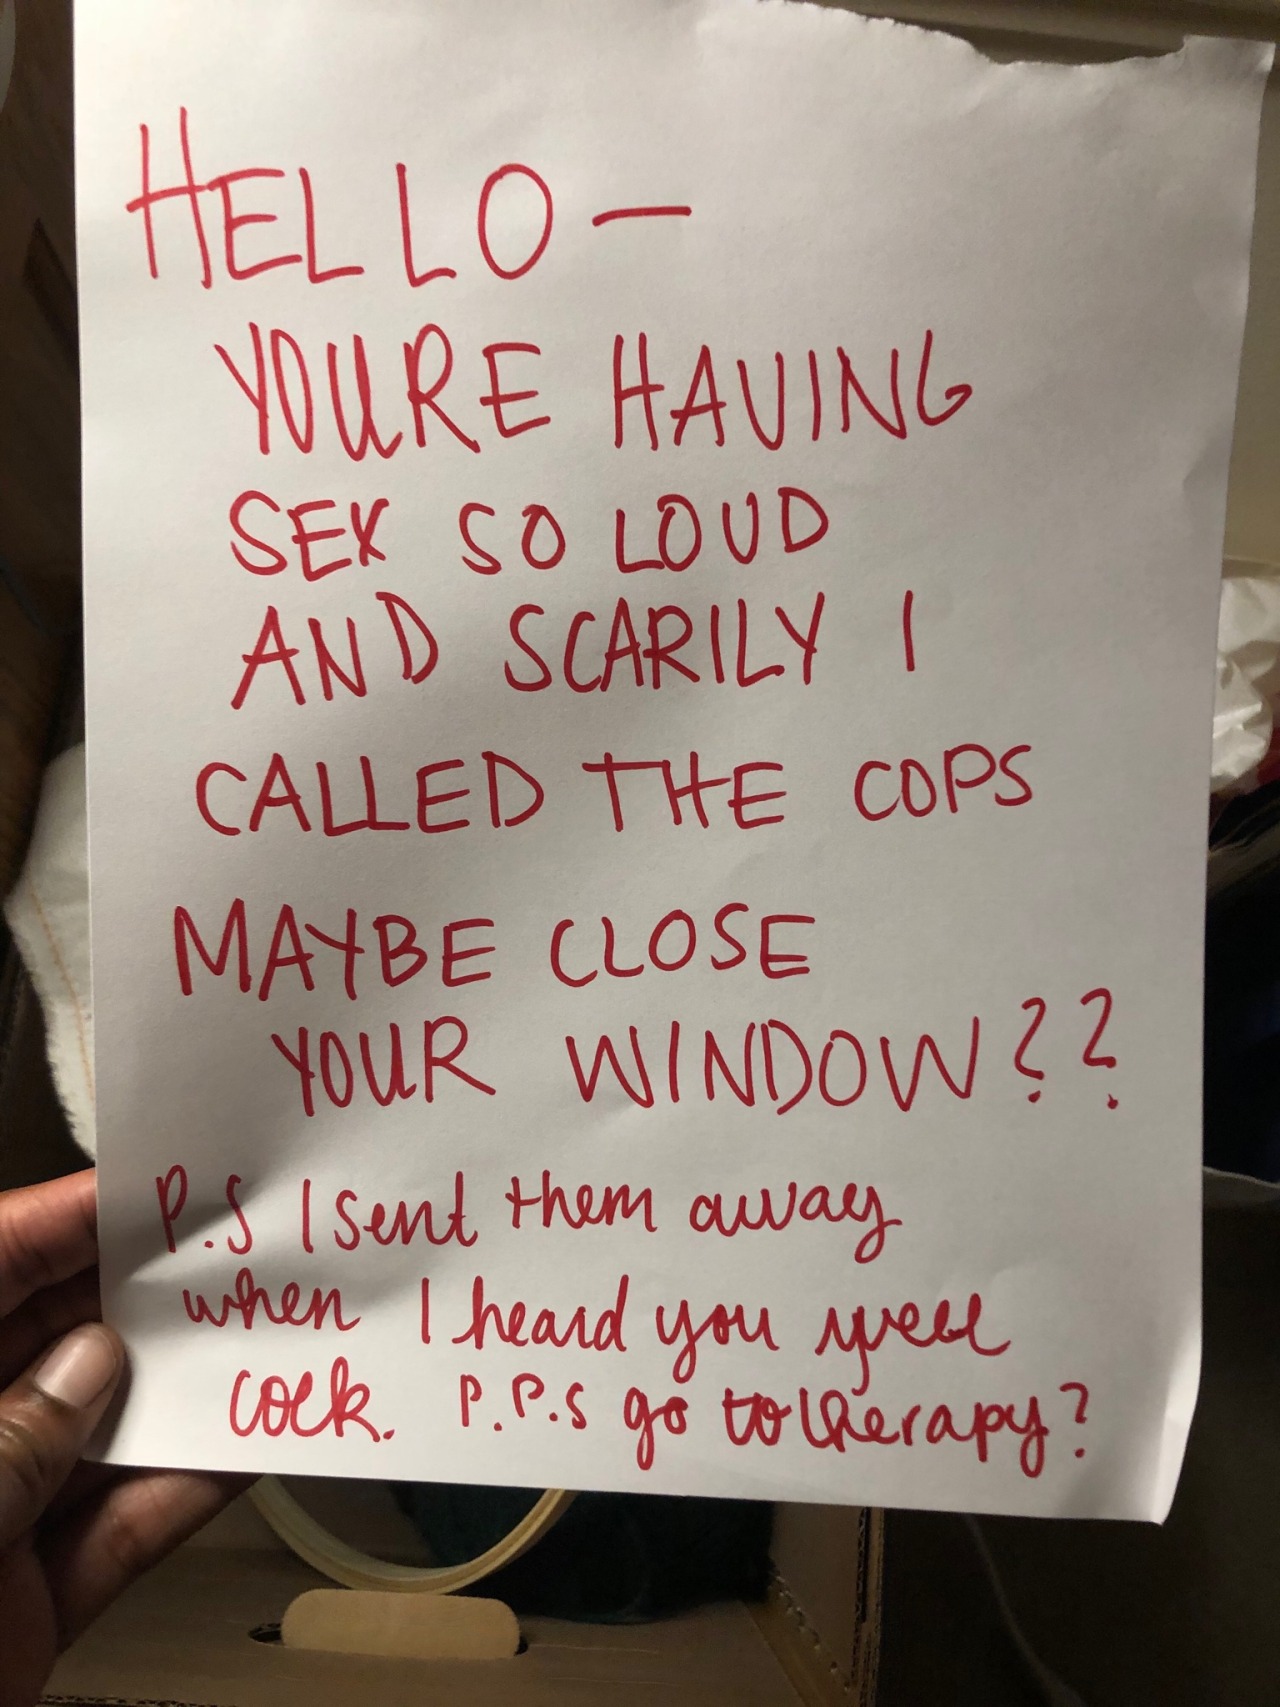 HELLO —
YOURE HAVING
SEX SO LOUD
AND SCARILY I
CALLED THE COPS
MAYBE CLOSE
YOUR WINDOW??
P.S I sent them away
when I heard you yell
cock. P.P.S go to therapy?